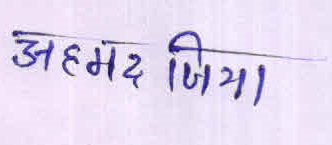 अहमद जिया